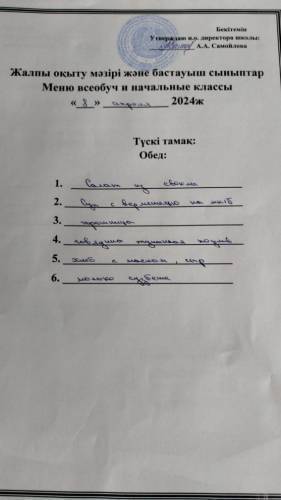 Бекітемін
Утверждаю и.о. директора школы:
А.А. Самойлова
Жалпы оқыту мәзірі және бастауыш сыныптар
Меню всеобуч и начальные классы
« 8 » апреля 2024ж
Түскі тамақ:
Обед:
1. Салат из свекла
2. Суп с вермешелью на
3.
4. говядина тушеная
5. хлеб с маслом, сыр
6. молоко